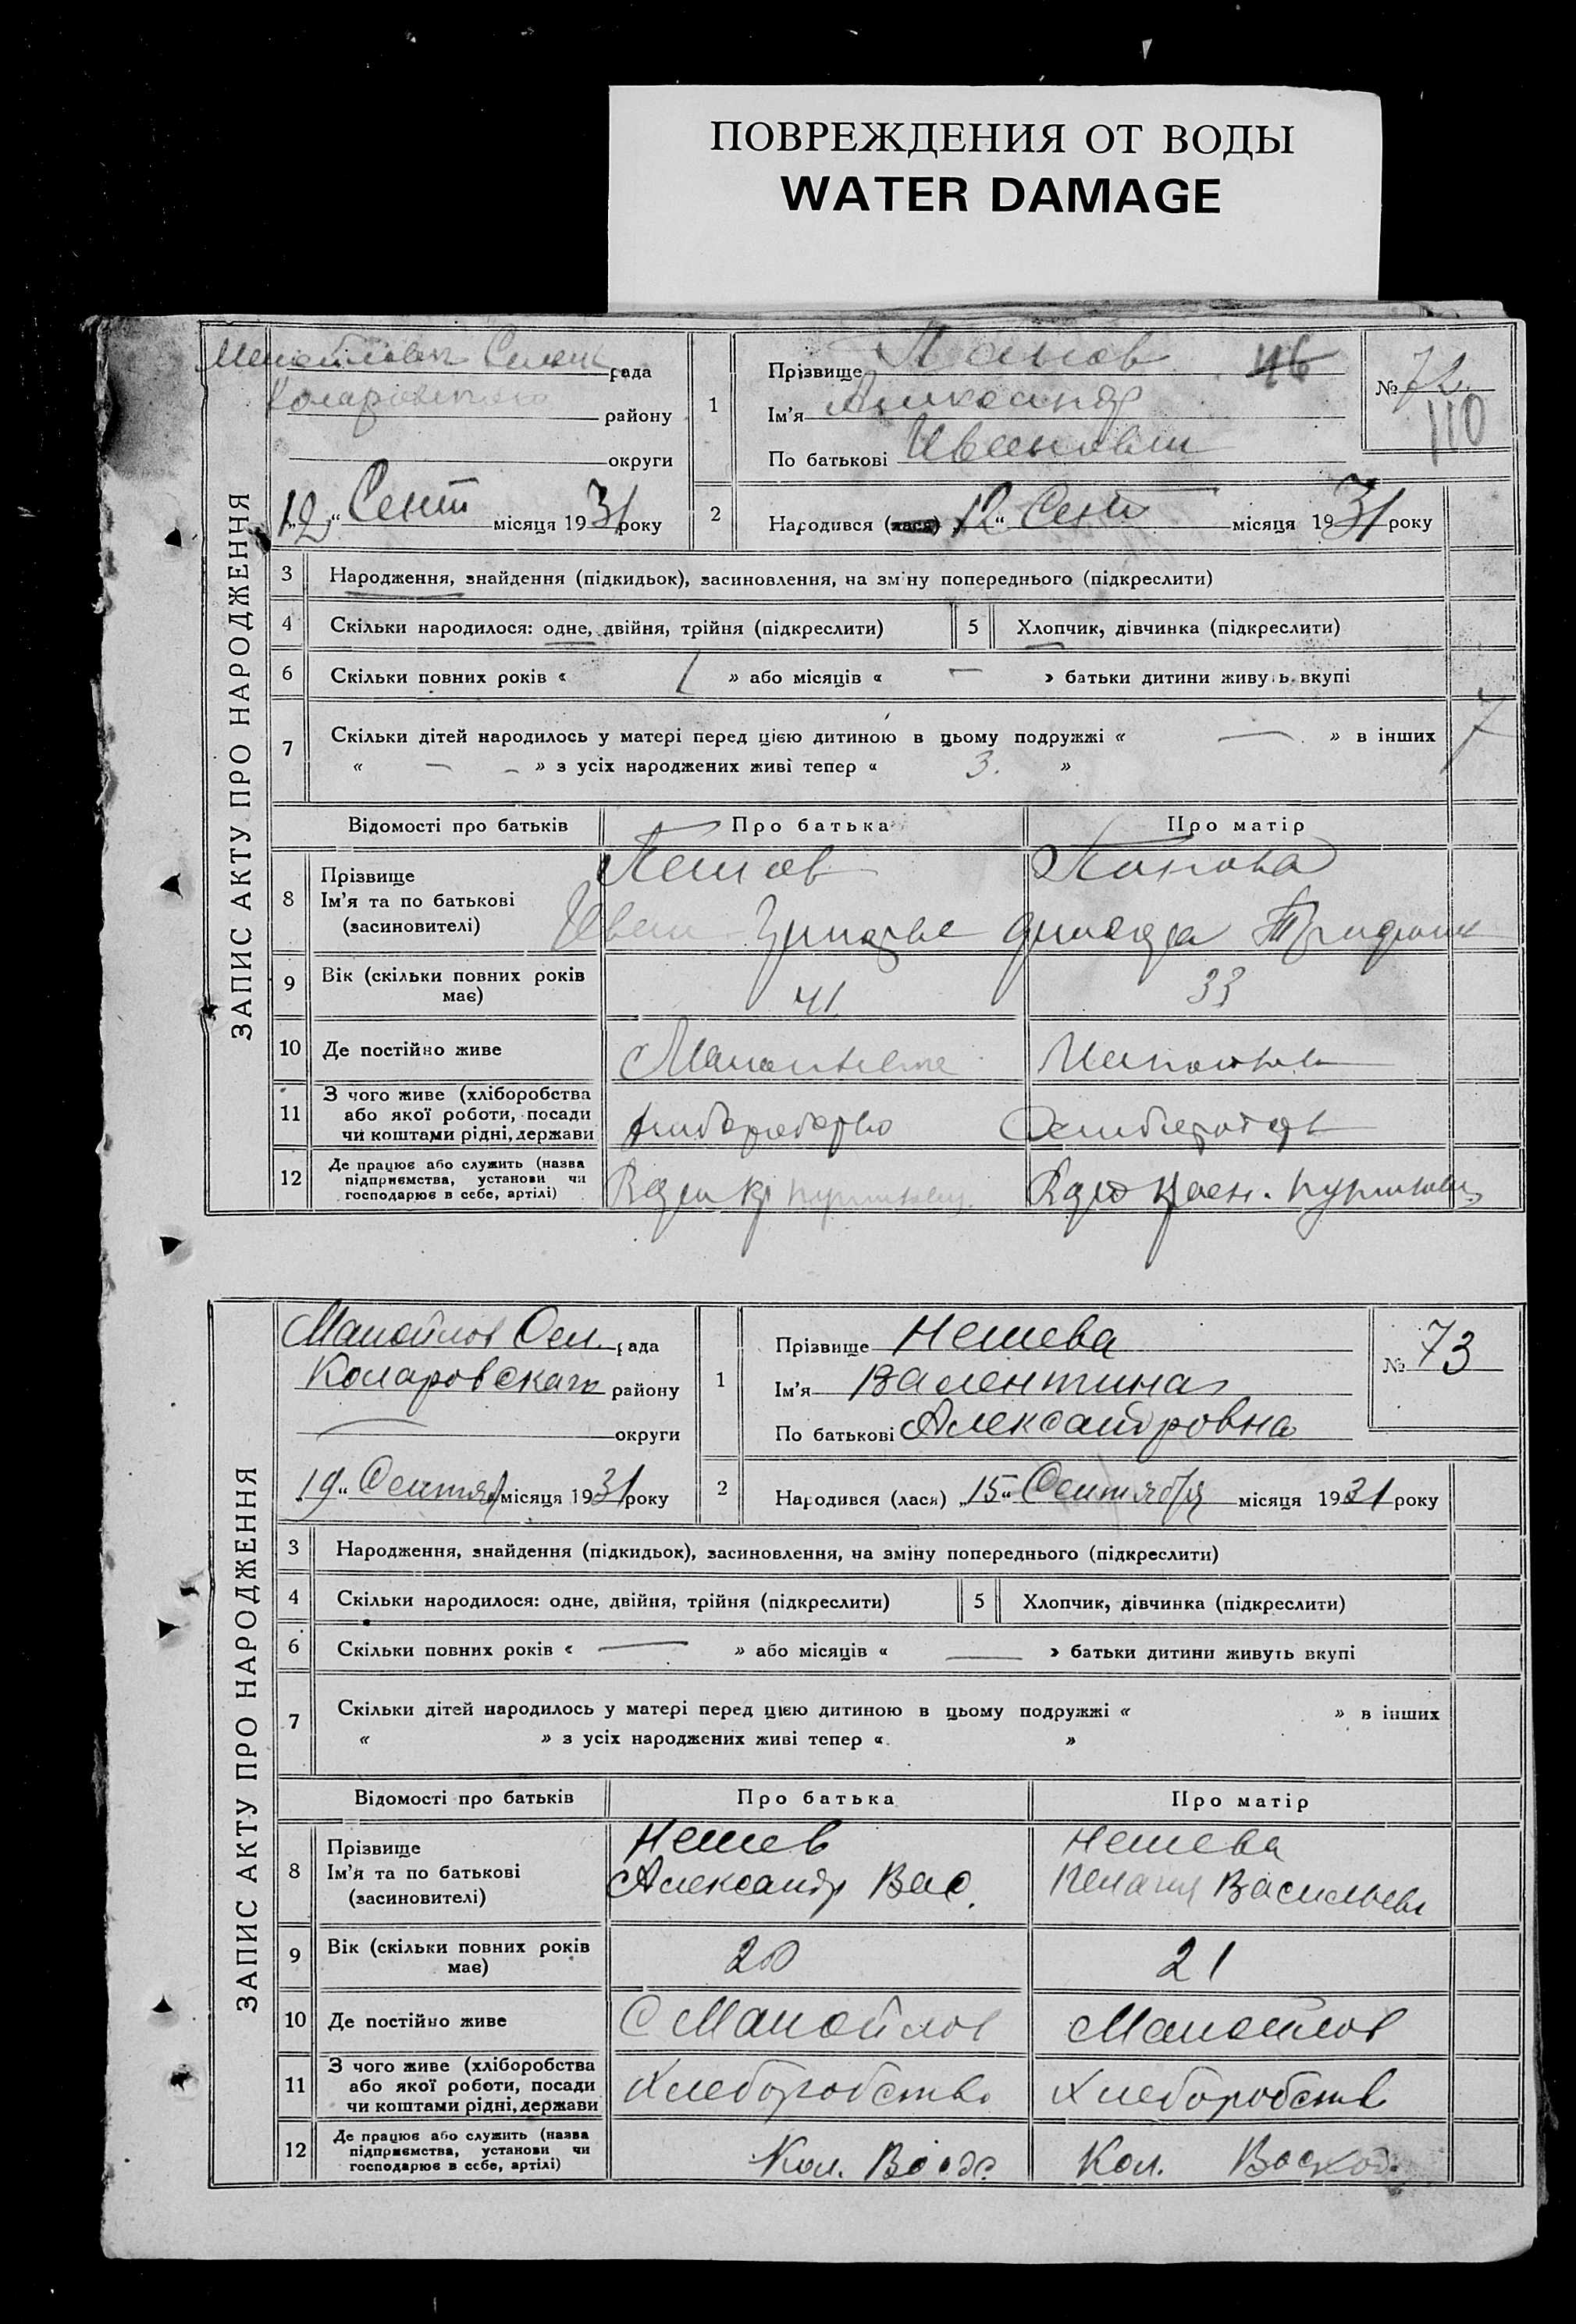 ПОВРЕЖДЕНИЯ ОТ ВОДЫ
WATER DAMAGE
ЗАПИС АКТУ ПРО НАРОДЖЕННЯ
рада
району
округи
„12“ Сент місяця 1931 року
1
Прізвище Панов 46
Ім'я
По батькові
№ 72
110
2
Народився (лася) „12“ Сент місяця 1931 року
3 Народження, знайдення (підкидьок), засиновлення, на зміну попереднього (підкреслити)
4 Скільки народилося: одне, двійня, трійня (підкреслити) 5 Хлопчик, дівчинка (підкреслити)
6 Скільки повних років « » або місяців « — » батьки дитини живуть вкупі
7 Скільки дітей народилось у матері перед цією дитиною в цьому подружжі « — » в інших 7
« — – » з усіх народжених живі тепер « 3. »
Відомості про батьків Про батька Про матір
8 Прізвище Панова
Ім'я та по батькові
(засиновителі)
9 Вік (скільки повних років має) 41 33
10 Де постійно живе
11 З чого живе (хліборобства або якої роботи, посади чи коштами рідні, держави
12 Де працює або служить (назва підприємства, установи чи господарює в себе, артілі)
ЗАПИС АКТУ ПРО НАРОДЖЕННЯ
Манойлов Сел. рада
Коларовскаго району
округи
„19“ Сентяб місяця 1931 року
1
Прізвище Нешева
Ім'я Валентина
По батькові Александровна
№ 73
2
Народився (лася) „15“ Сентября місяця 1931 року
3 Народження, знайдення (підкидьок), засиновлення, на зміну попереднього (підкреслити)
4 Скільки народилося: одне, двійня, трійня (підкреслити) 5 Хлопчик, дівчинка (підкреслити)
6 Скільки повних років « — » або місяців « — » батьки дитини живуть вкупі
7 Скільки дітей народилось у матері перед цією дитиною в цьому подружжі « » в інших
« » з усіх народжених живі тепер « »
Відомості про батьків Про батька Про матір
8 Прізвище Нешев Нешева
Ім'я та по батькові Александр Вас. Пелагия Васильевн
(засиновителі)
9 Вік (скільки повних років має) 20 21
10 Де постійно живе С Манойлов Манойлов
11 З чого живе (хліборобства або якої роботи, посади чи коштами рідні, держави Хлеборобство Хлеборобств
12 Де працює або служить (назва підприємства, установи чи господарює в себе, артілі) Кол. Кол. Восход.